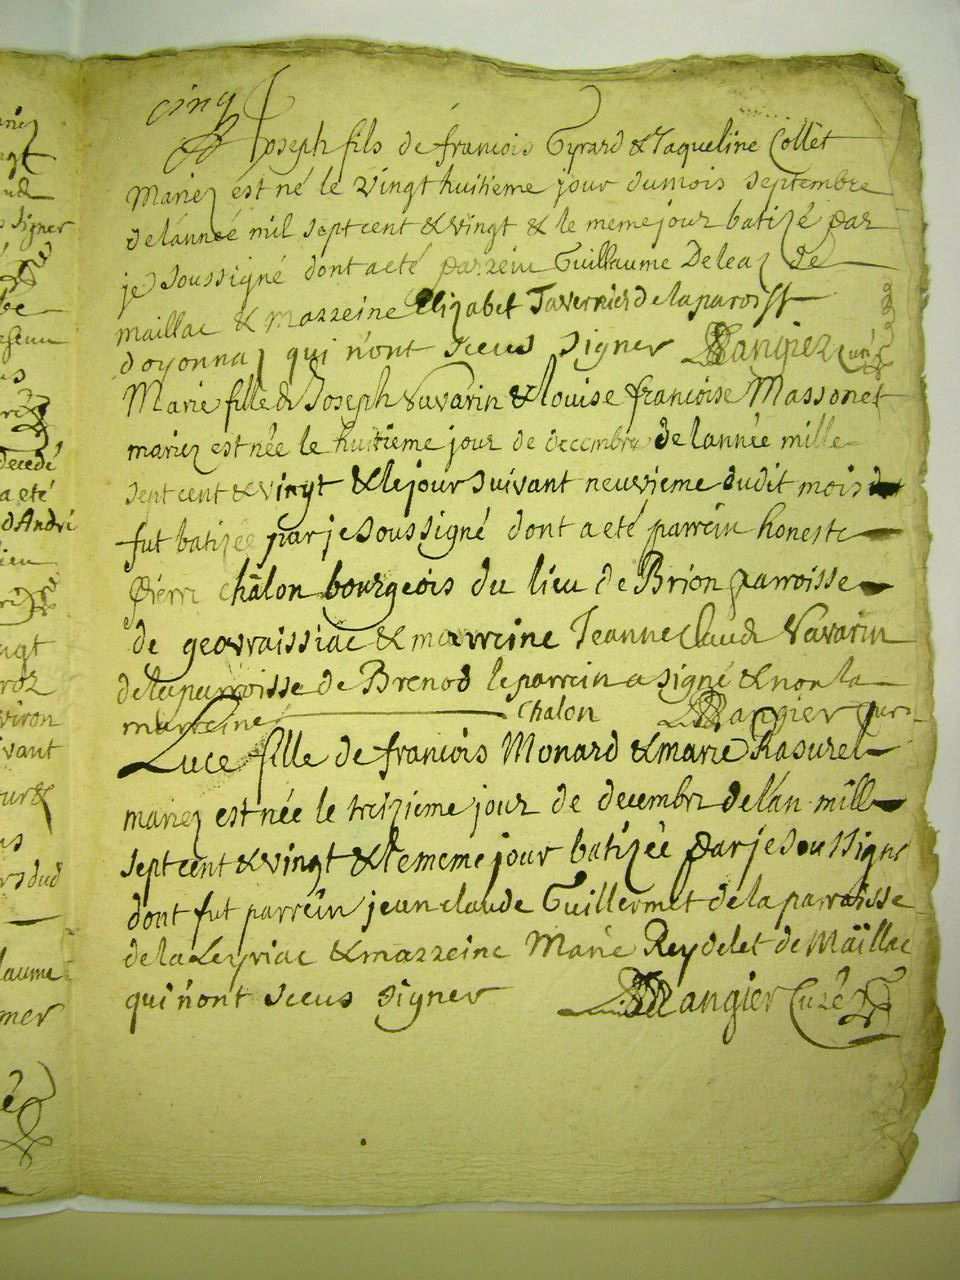 cinq
Joseph fils de francois Gyrard & Jaqueline Collet
Mariez est né le vingt huitieme jour du mois septembre
de lánneé mil sept cent & vingt & le meme jour batizé par
je soussigné dont a eté parrein Guillaume Deleaz de
maillac & marreine Elizabet Tavernier de la paroisse
doyonnaz qui nónt sceus signer Mangier Curé
Marie fille de Joseph Vuvarin & louise francoise Massonet
mariez est née le huitieme jour de decembre de lannée mille
sept cent & vingt & le jour suivant neuvieme dudit mois
fut batizée par je soussigné dont a eté parrein honeste
pierre chalon bourgeois du lieu de Brion parroisse
de geovraissiac & marreine Jeanne Claude Vavarin
de la parroisse de Brenod le parrein a signé & non la
marreine chalon Mangier Curé
Luce fille de francois Monard & marie Rasurel
mariez est née le treizieme jour de decembre de lán mill
sept cent & vingt & le meme jour batizée par je soussigne
dont fut parrein jean claude Guillermet de la parroisse
de la Leyriac & marreine Marie Reydelet de Maillac
qui nónt sceus signer Mangier Curé